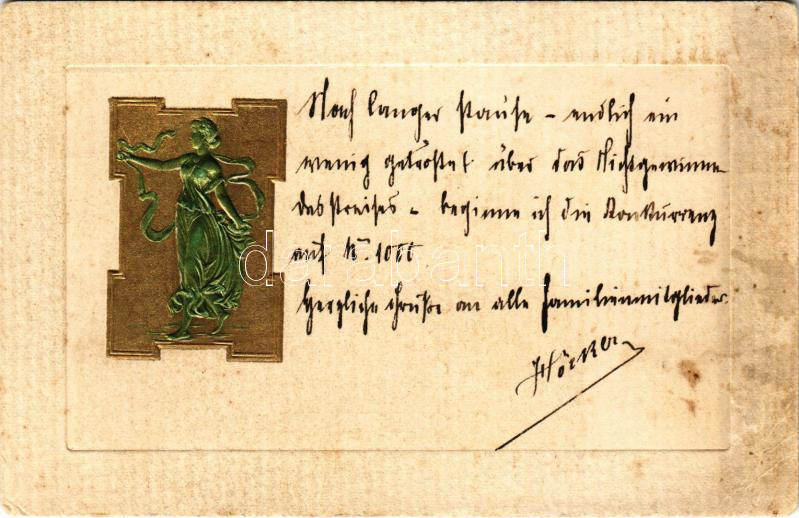 Nach langer Pause – endlich ein
wenig getröstet über das Nichtgewinnen
des Preises – beginne ich die Konkurrenz
auf No. 1000.
Herzliche Grüße an alle Familienmitglieder.
darabanth